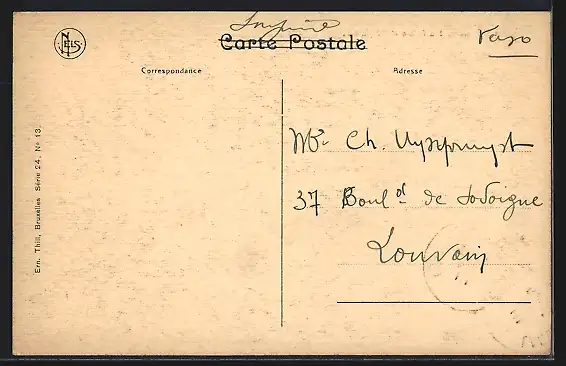 Imprimé
NELS
Carte Postale
Correspondance
Adresse
Mr Ch.
37 Boulᵈ de
Louvain
Ern. Thill, Bruxelles Série 24, No 13.